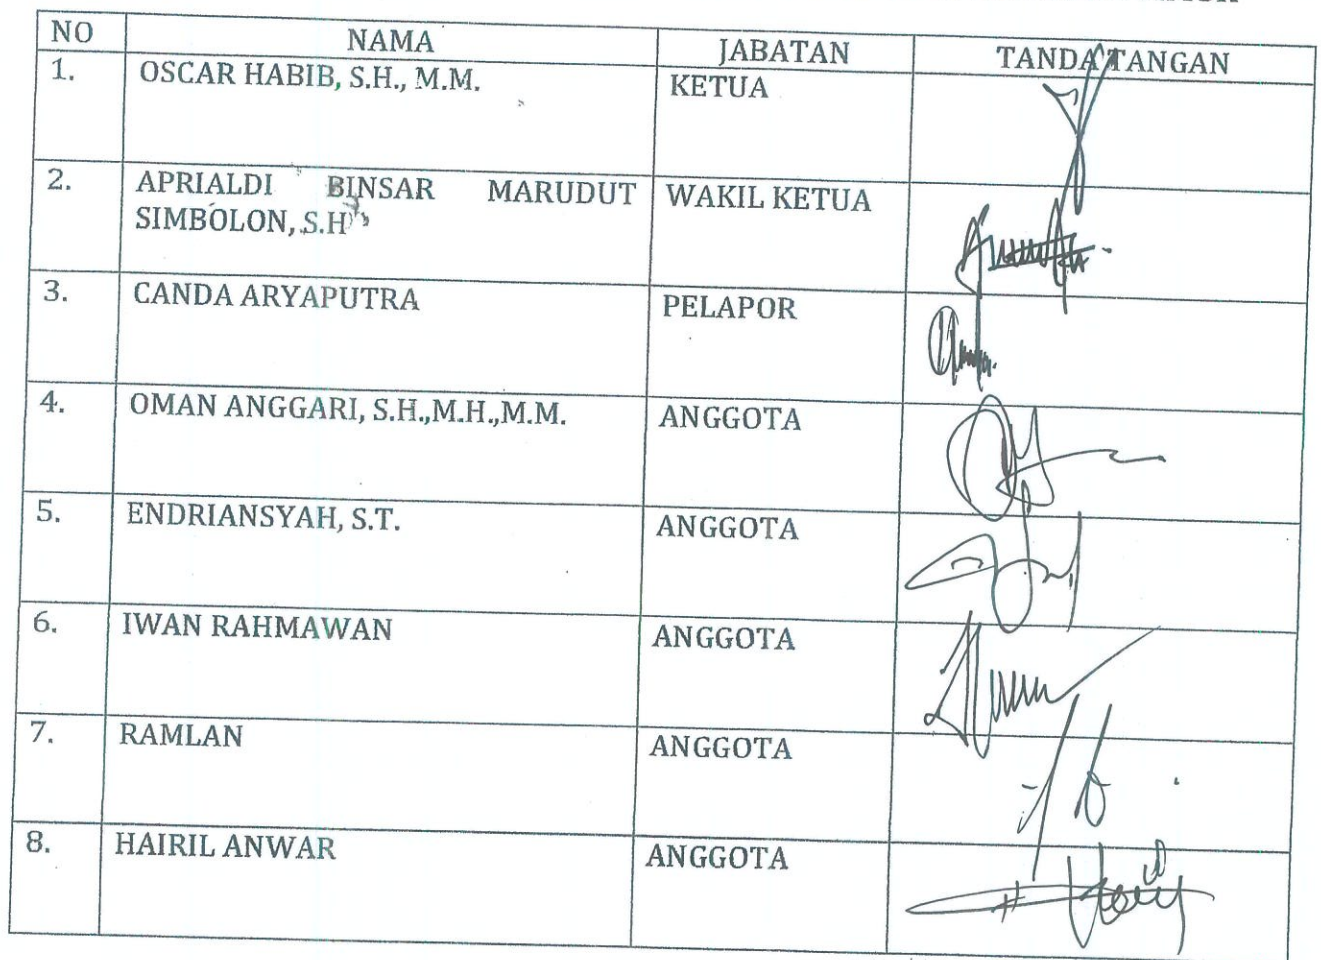 NO NAMA JABATAN TANDA TANGAN
1. OSCAR HABIB, S.H., M.M. KETUA
2. APRIALDI BINSAR MARUDUT WAKIL KETUA
SIMBOLON, S.H
3. CANDA ARYAPUTRA PELAPOR
4. OMAN ANGGARI, S.H.,M.H.,M.M. ANGGOTA
5. ENDRIANSYAH, S.T. ANGGOTA
6. IWAN RAHMAWAN ANGGOTA
7. RAMLAN ANGGOTA
8. HAIRIL ANWAR ANGGOTA